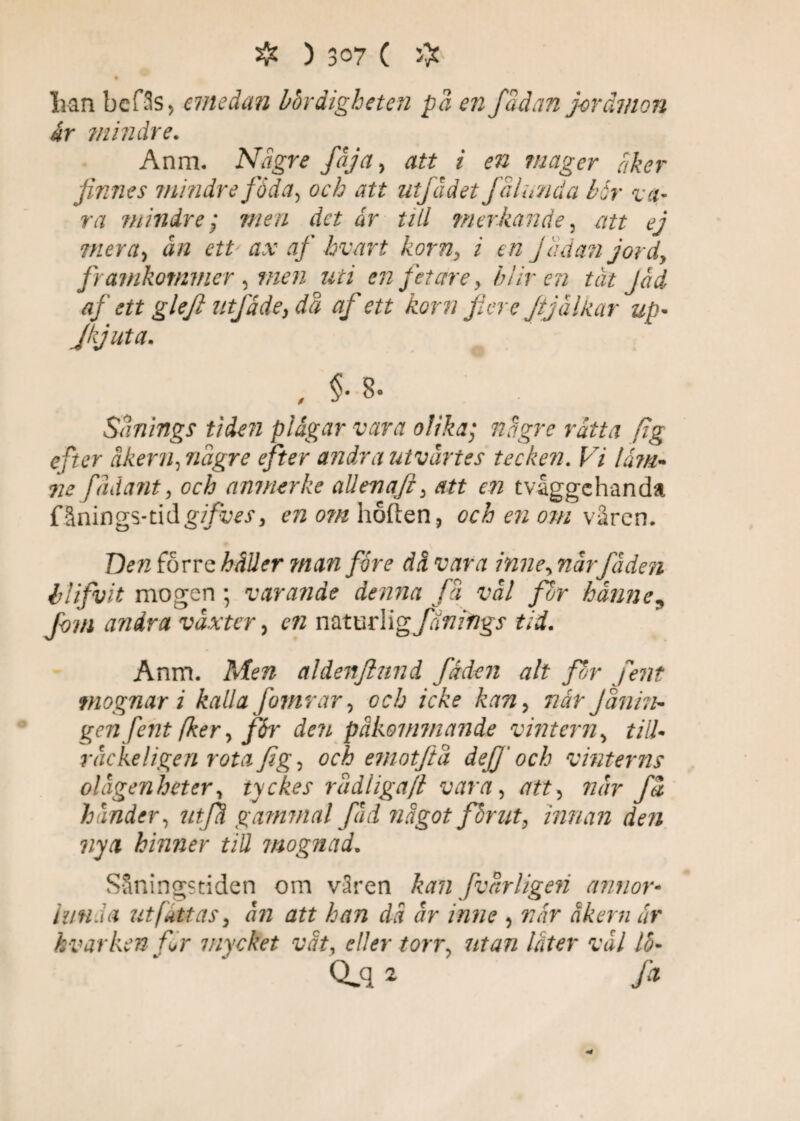 ☆ ) 307 ( ☆
han beſås, emedan bördigheten på en ſådan jordmon
är mindre.
Anm. Någre ſäja, att i en mager åker
finnes mindre föda, och att utſådet ſålunda bör va-
ra mindre; men det är till merkande, att ej
mera, än ett ax af hvart korn, i en ſådan jord,
framkommer, men uti en fetare, blir en tät ſåd
af ett gleſt utſäde, då af ett korn flere ſtjälkar up-
ſkjuta.
§. 8.
Sånings tiden plägar vara olika; någre rätta ſig
efter åkern, någre efter andra utvärtes tecken. Vi läm-
ne ſådant, och anmerke allenaſt, att en tväggehanda
ſånings-tid gifves, en om höſten, och en om våren.
Den förre håller man före då vara inne, når ſåden
blifvit mogen; varande denna få väl för hänne,
ſom andra växter, en naturlig ſånings tid.
Anm. Men aldenſtund ſåden alt för ſent
mognar i kalla ſomrar, och icke kan, når ſånin-
gen ſent ſker, för den påkommande vintern, till-
räckeligen rota ſig, och emotſtå deſſ' och vinterns
olägenheter, tyckes rådligaſt vara, att, når ſå
händer, utſå gammal ſåd något förut, innan den
nya hinner till mognad.
Såningstiden om våren kan ſvårligen annor-
lunda utſättas, än att han då är inne, når åkern är
hvarken för mycket våt, eller torr, utan låter väl lö-
Qq 2 ſa